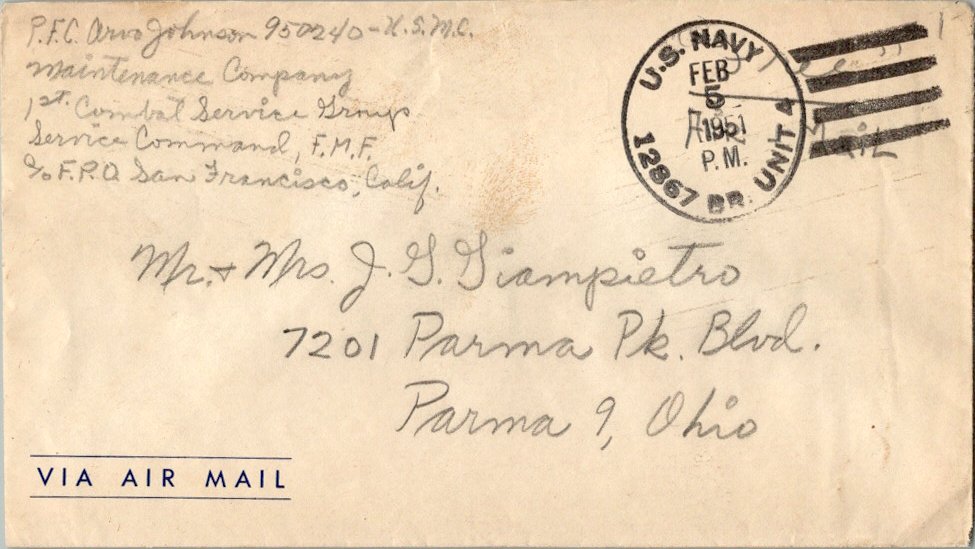 P.F.C. Arvo Johnson 950240-U.S.M.C.
Maintenance Company
1st. Combat Service Group
Service Command, F.M.F.
c/o F.P.O. San Francisco, Calif.
U.S. NAVY
FEB
5
1951
P.M.
12867 BR. UNIT 4
Free
Air Mail
Mr. & Mrs. J. G. Giampietro
7201 Parma Pk. Blvd.
Parma 9, Ohio
VIA AIR MAIL